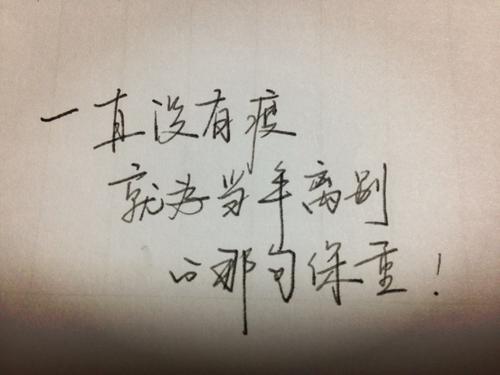 一直没有瘦
就为当年离别
的那句保重！